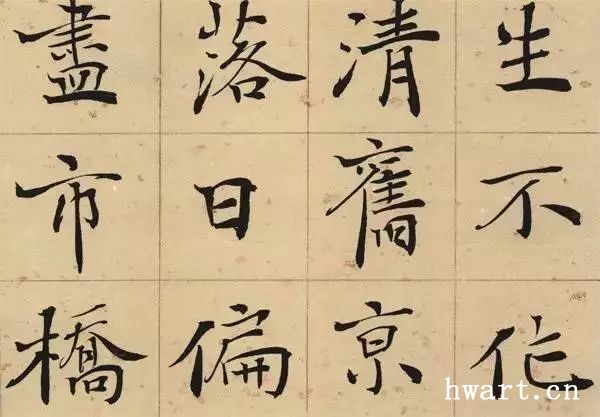 生不作
清舊京
落日偏
盡市橋
hwart.cn